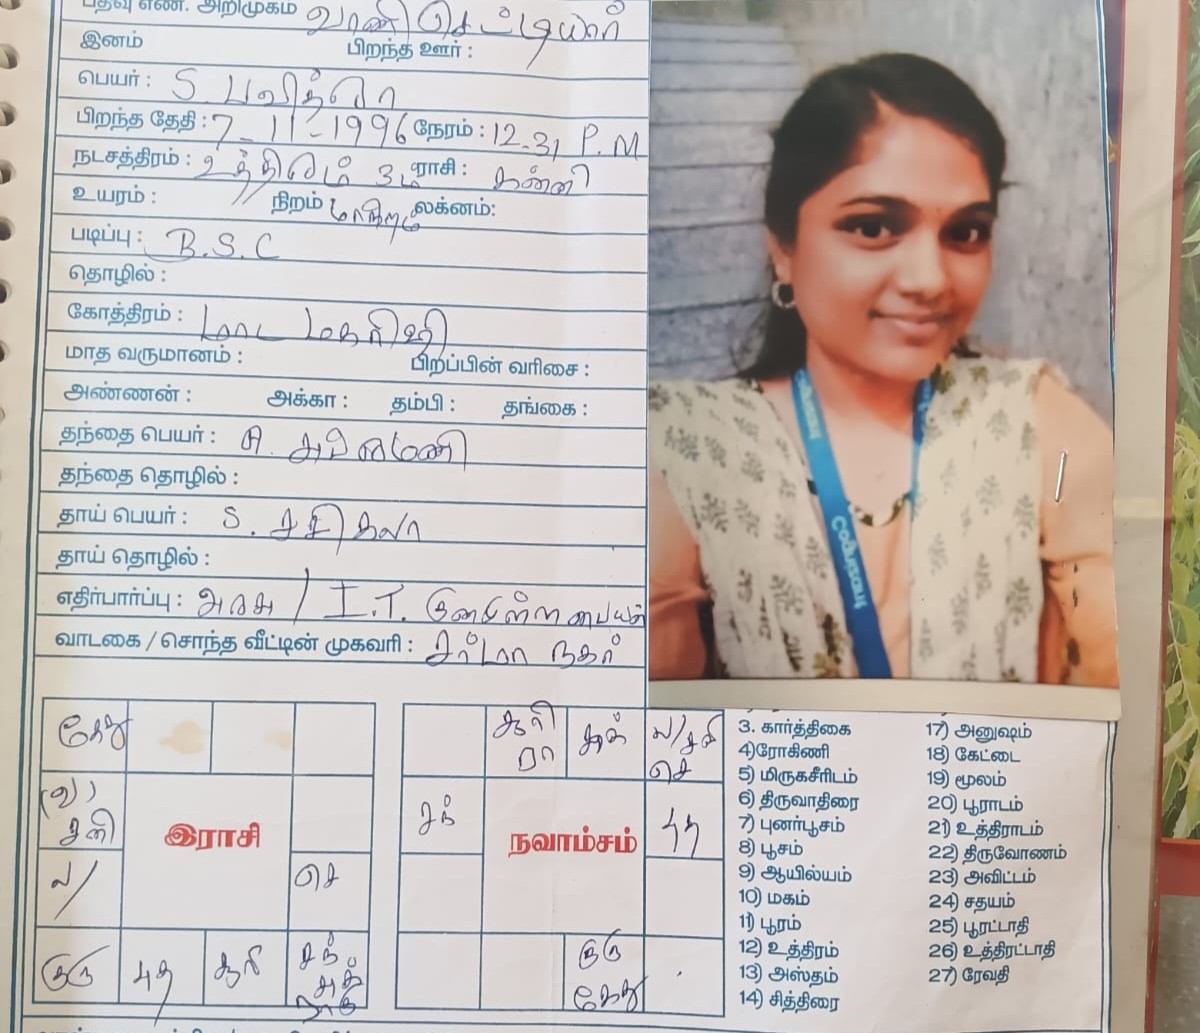 பதிவு எண். அறிமுகம் வாணி செட்டியார்
இனம் பிறந்த ஊர் :
பெயர் : S. பவித்ரா
பிறந்த தேதி : 7-11-1996 நேரம் : 12-31 P.M
நடசத்திரம் : உத்திரம் 3ம் ராசி : கன்னி
உயரம் : நிறம் மாநிறம் லக்னம்:
படிப்பு : B.S.C
தொழில் :
கோத்திரம் : மகரிஷி
மாத வருமானம் : பிறப்பின் வரிசை :
அண்ணன் : அக்கா : தம்பி : தங்கை :
தந்தை பெயர் :
தந்தை தொழில் :
தாய் பெயர் : S. சசிகலா
தாய் தொழில் :
எதிர்பார்ப்பு : அரசு / I.T. குணமுள்ள பையன்
வாடகை / சொந்த வீட்டின் முகவரி : சர்மா நகர்
கேது
சனி
இராசி
ல/
செ
குரு புத சூரி சந் சுக் ராகு
சூரி ரா சுக் ல/சனி செ
சந் நவாம்சம் புத
குரு கேது
3. கார்த்திகை
4)ரோகிணி
5) மிருகசீரிடம்
6) திருவாதிரை
7) புனர்பூசம்
8) பூசம்
9) ஆயில்யம்
10) மகம்
11) பூரம்
12) உத்திரம்
13) அஸ்தம்
14) சித்திரை
17) அனுஷம்
18) கேட்டை
19) மூலம்
20) பூராடம்
21) உத்திராடம்
22) திருவோணம்
23) அவிட்டம்
24) சதயம்
25) பூரட்டாதி
26) உத்திரட்டாதி
27) ரேவதி